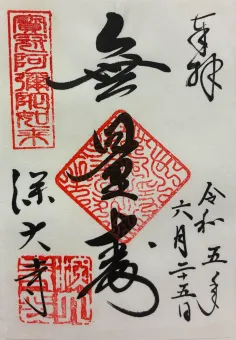 奉拝
令和五年
六月二十五日
無量寿
寳冠阿彌陀如来
深大寺